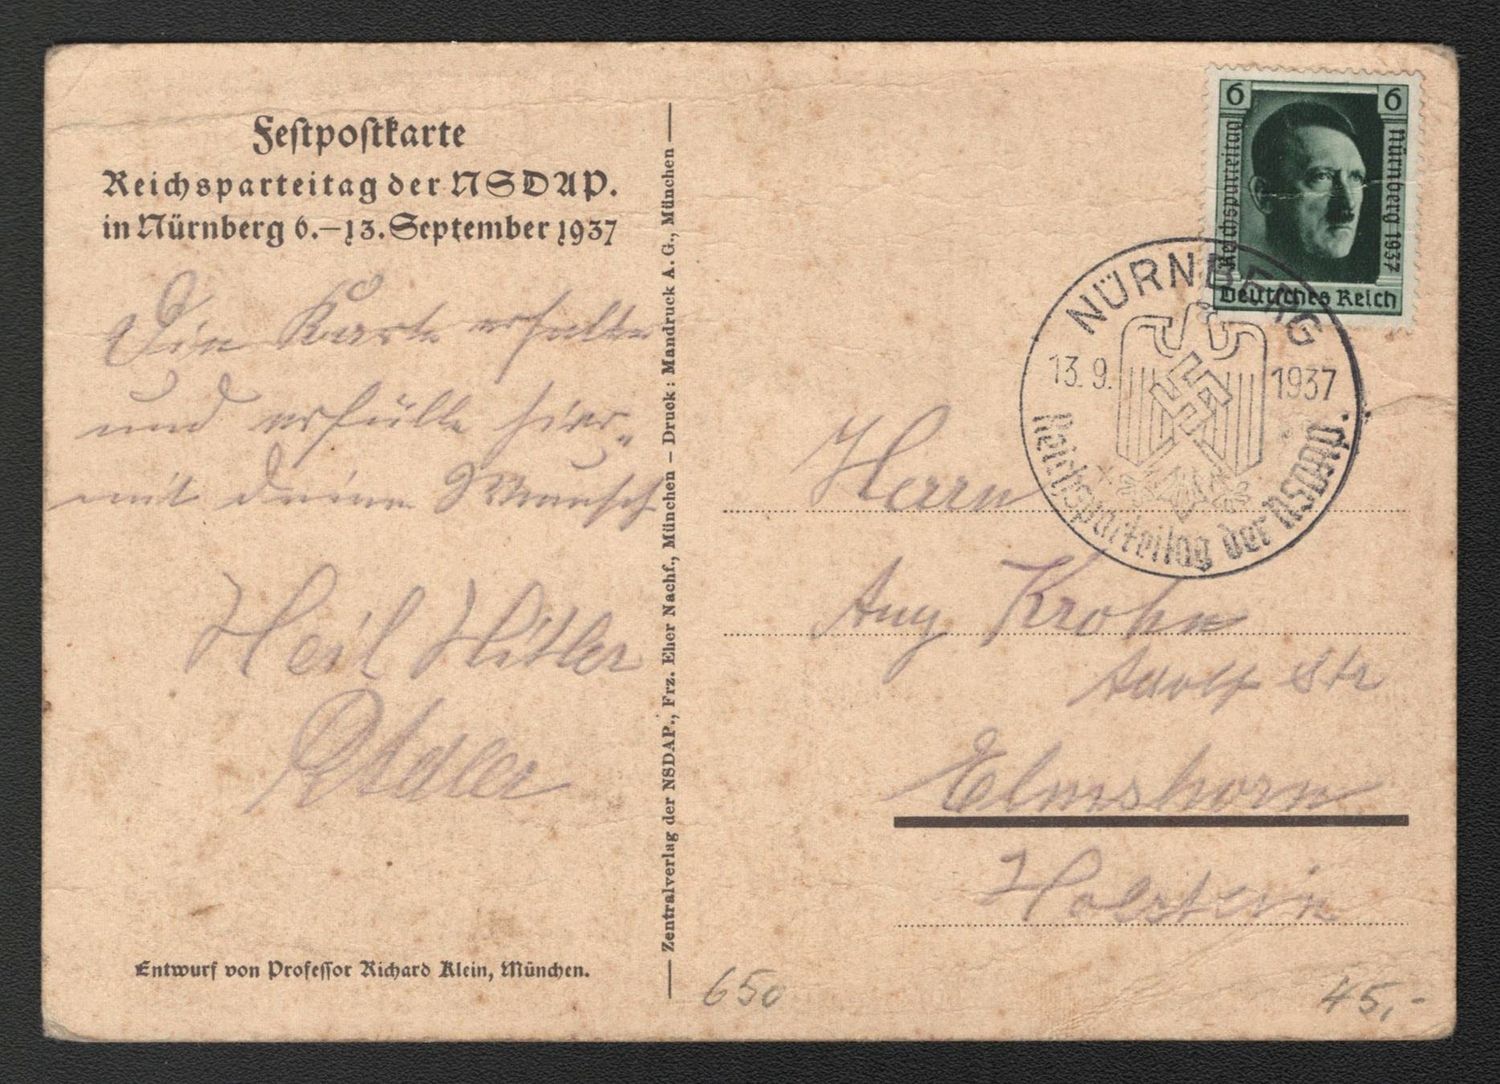 Festpostkarte
Reichsparteitag der NSDAP.
in Nürnberg 6.–13. September 1937
Die Karte erhalten
und erfülle hier-
mit deinen Wunsch
Heil Hitler
Adler
Entwurf von Professor Richard Klein, München.
Zentralverlag der NSDAP., Frz. Eher Nachf., München – Druck: Mandruck A. G., München
6 6
Reichsparteitag
Nürnberg 1937
Deutsches Reich
NÜRNBERG
13.9. 1937
Reichsparteitag der NSDAP.
Herrn
Aug Krohn
Adolf Str
Elmshorn
Holstein
650
45,-